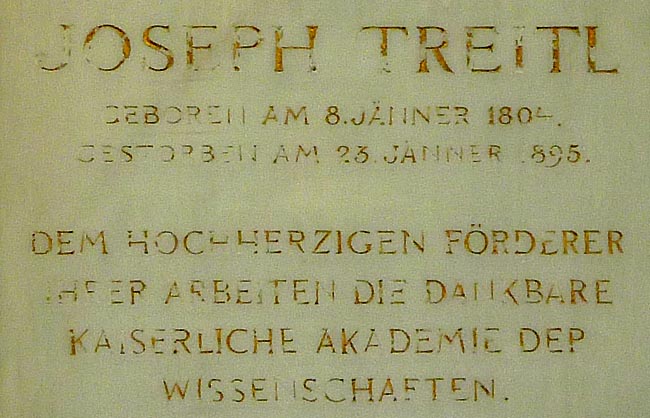 JOSEPH TREITL
GEBOREN AM 8. JÄNNER 1804.
GESTORBEN AM 23. JÄNNER 1895.
DEM HOCHHERZIGEN FÖRDERER
IHRER ARBEITEN DIE DANKBARE
KAISERLICHE AKADEMIE DER
WISSENSCHAFTEN.